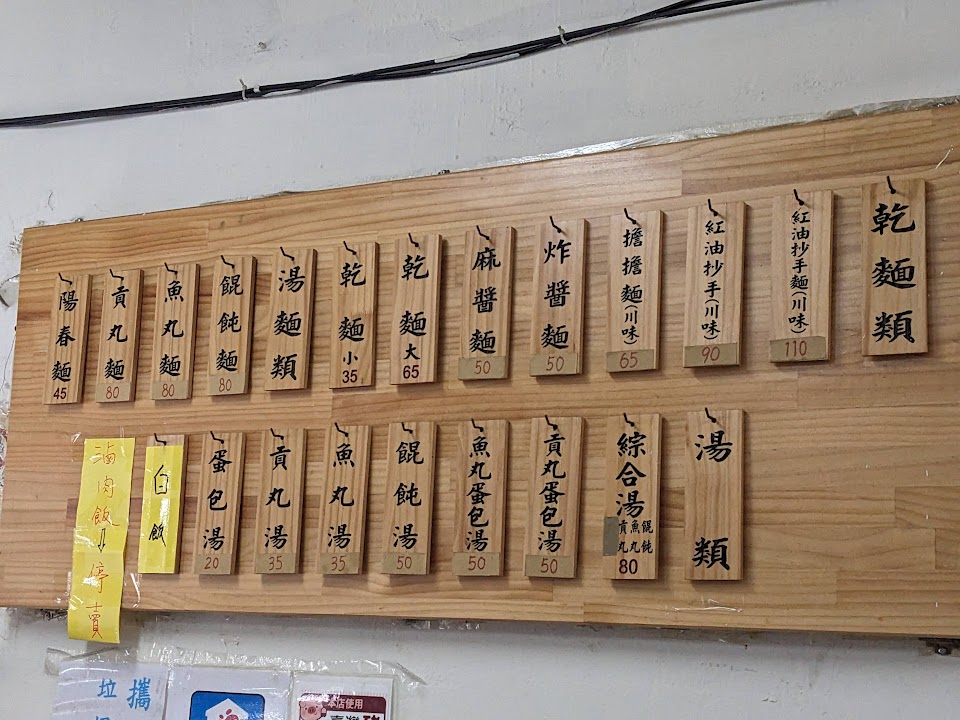 乾麵類
紅油抄手麵(川味)
110
紅油抄手(川味)
90
擔擔麵(川味)
65
炸醬麵
50
麻醬麵
50
乾麵大
65
乾麵小
35
湯麵類
餛飩麵
80
魚丸麵
80
貢丸麵
80
陽春麵
45
湯類
綜合湯
餛飩
魚丸
貢丸
80
貢丸蛋包湯
50
魚丸蛋包湯
50
餛飩湯
50
魚丸湯
35
貢丸湯
35
蛋包湯
20
白飯
滷肉飯→停賣
攜
垃
本店使用
臺灣豬